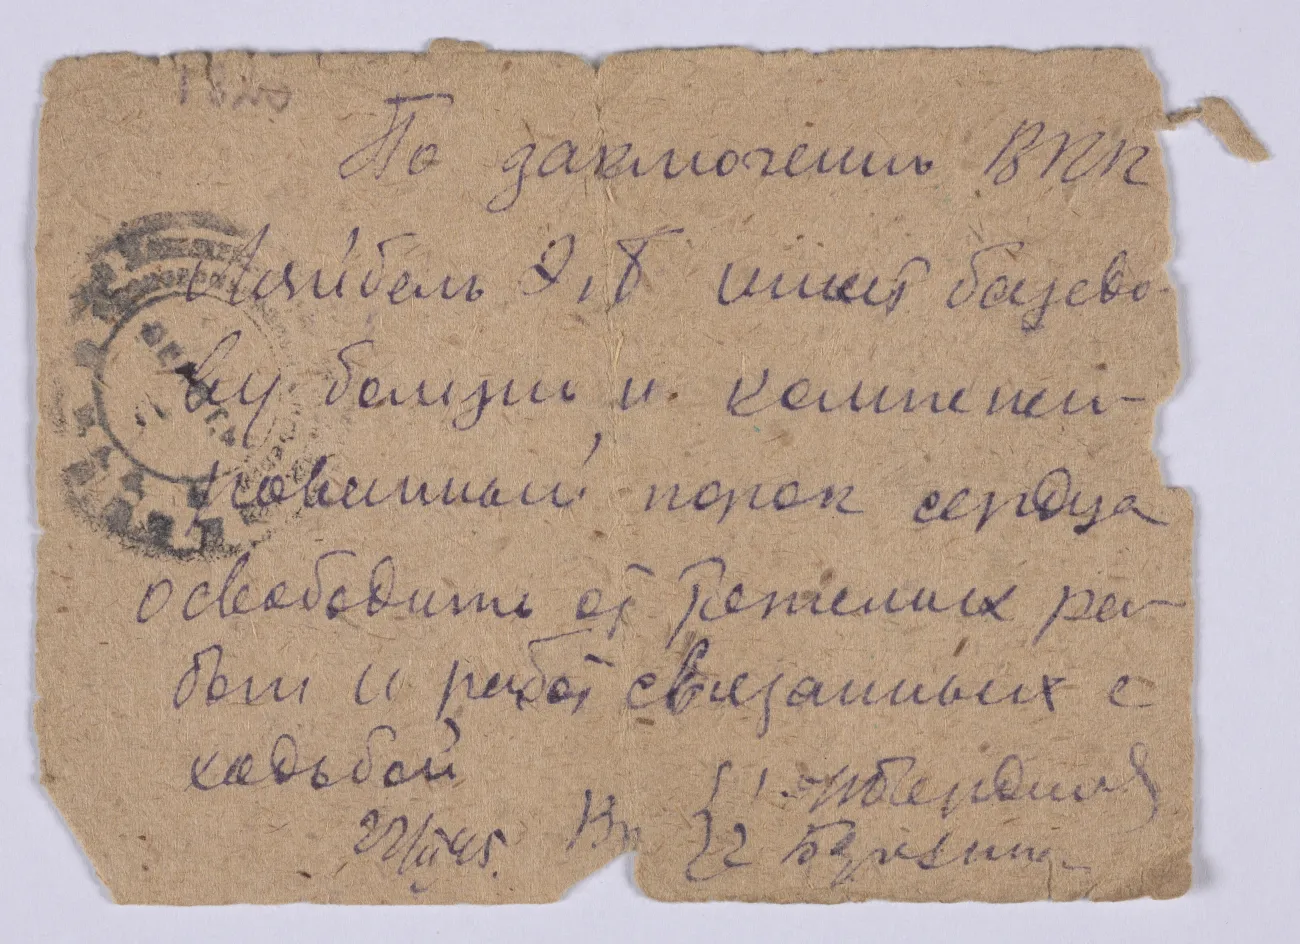 По заключению ВКК
Лейбель Э.Т имеет базедо
ву болезнь и компенси-
рованный порок сердца
освободить от тяжелых ра-
бот и работ связанных с
ходьбой
22/III 45. Вр